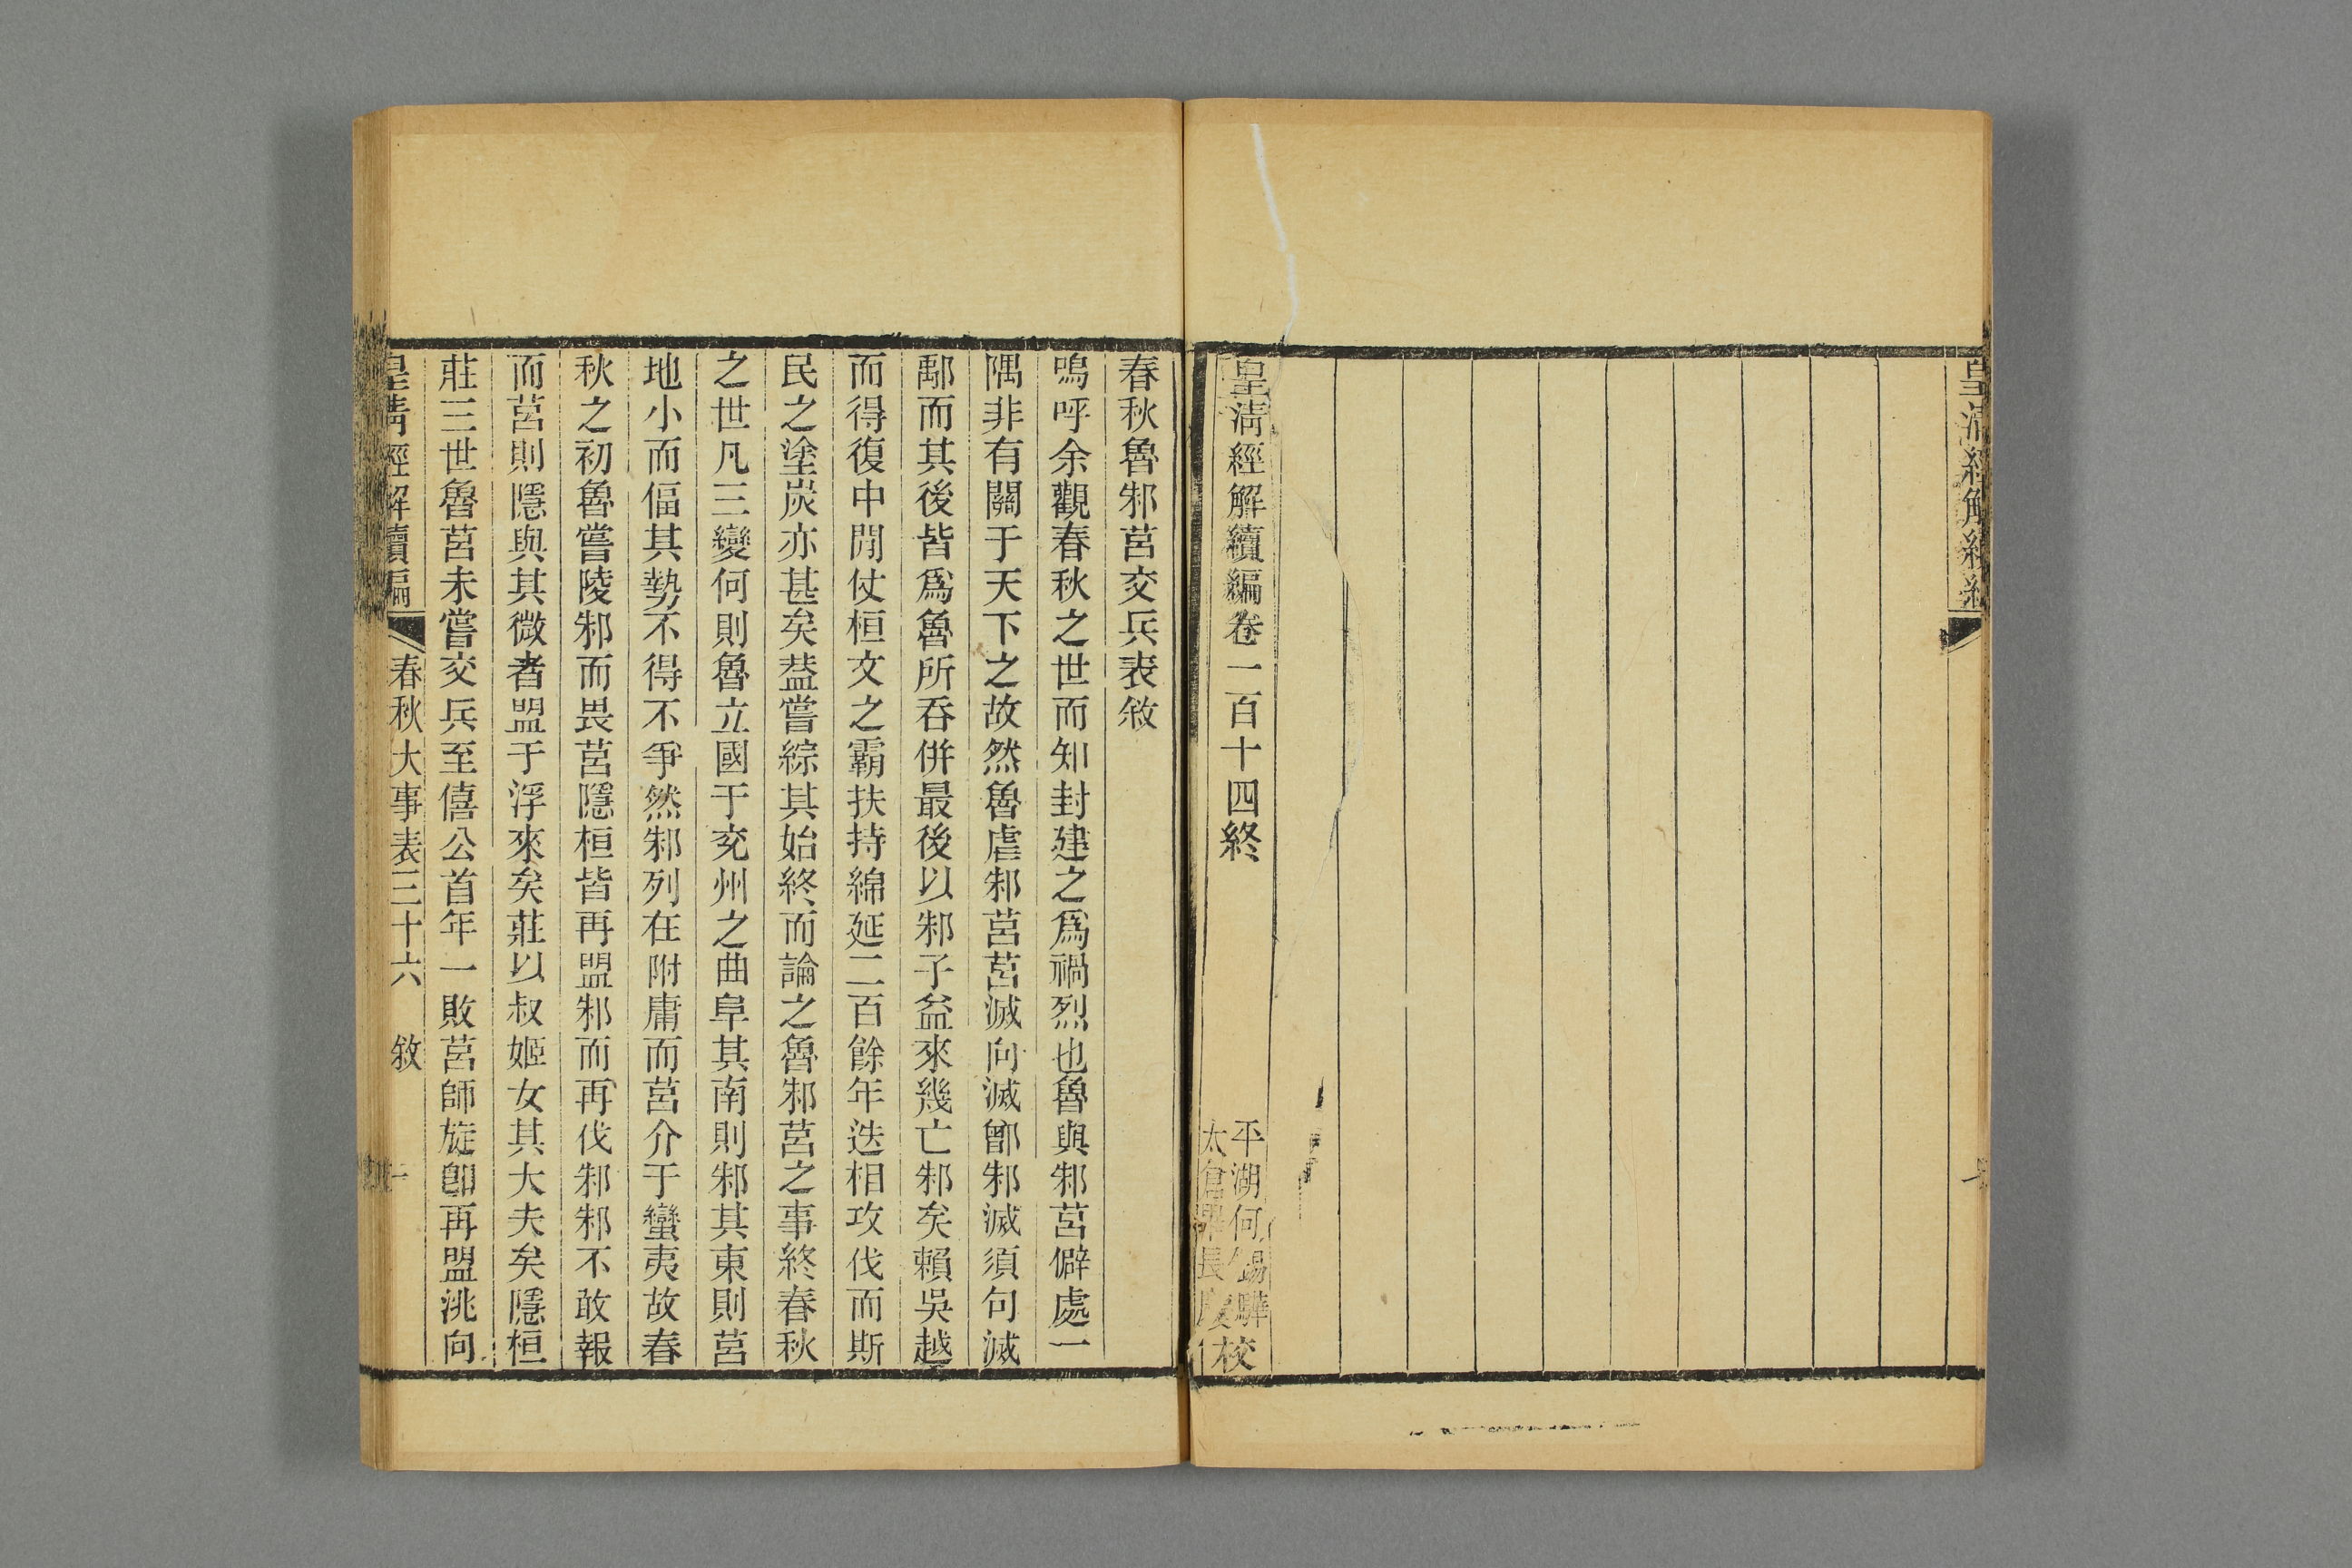 皇清經解續編
皇清經解續編卷一百十四終
平湖何錫驊
太倉畢長慶
校
春秋魯邾莒交兵表敘
嗚呼余觀春秋之世而知封建之爲禍烈也魯與邾莒僻處一
隅非有關于天下之故然魯虐邾莒莒滅向滅鄫邾滅須句滅
鄅而其後皆爲魯所吞併最後以邾子益來幾亡邾矣賴吳越
而得復中閒仗桓文之霸扶持綿延二百餘年迭相攻伐而斯
民之塗炭亦甚矣葢嘗綜其始終而論之魯邾莒之事終春秋
之世凡三變何則魯立國于兖州之曲阜其南則邾其東則莒
地小而偪其勢不得不爭然邾列在附庸而莒介于蠻夷故春
秋之初魯嘗陵邾而畏莒隱桓皆再盟邾而再伐邾邾不敢報
而莒則隱與其微者盟于浮來矣莊以叔姬女其大夫矣隱桓
莊三世魯莒未嘗交兵至僖公首年一敗莒師旋卽再盟洮向
皇清經解續編 春秋大事表三十六 敘 一